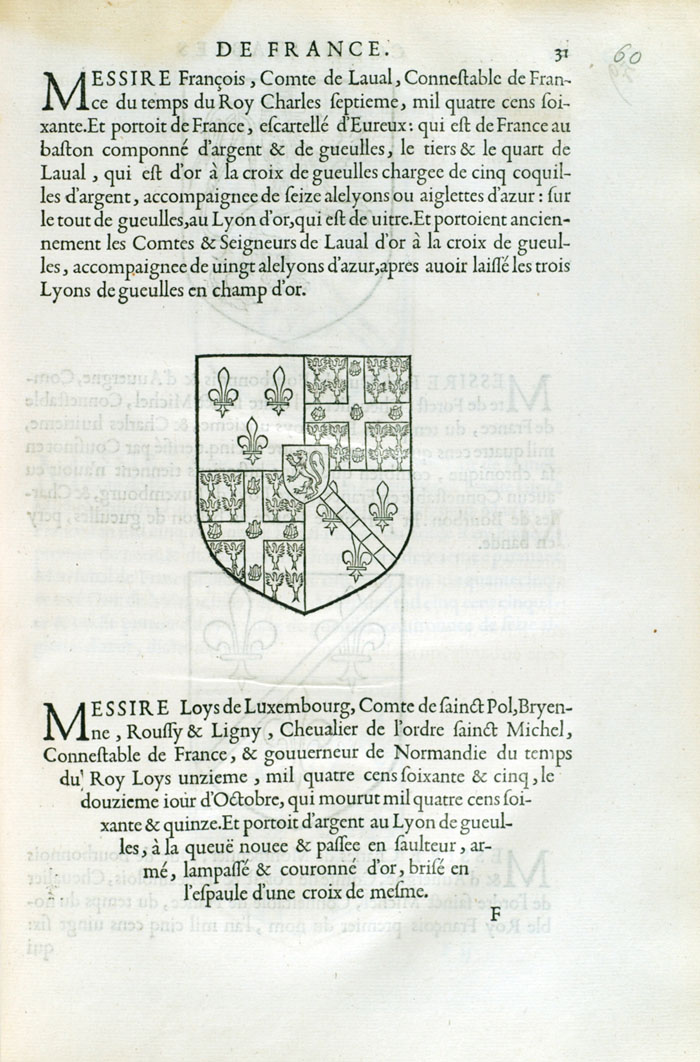 DE FRANCE. 31
60
MESSIRE François, Comte de Laual, Conneſtable de Fran-
ce du temps du Roy Charles ſeptieme, mil quatre cens ſoi-
xante.Et portoit de France, eſcartellé d'Eureux: qui eſt de France au
baſton componné d'argent & de gueulles, le tiers & le quart de
Laual, qui eſt d'or à la croix de gueulles chargee de cinq coquil-
les d'argent, accompaignee de ſeize alelyons ou aiglettes d'azur: ſur
le tout de gueulles,au Lyon d'or,qui eſt de uitre.Et portoient ancien-
nement les Comtes & Seigneurs de Laual d'or à la croix de gueul-
les, accompaignee de uingt alelyons d'azur,apres auoir laiſſé les trois
Lyons de gueulles en champ d'or.
MESSIRE Loys de Luxembourg, Comte de ſainct Pol,Bryen-
ne, Rouſſy & Ligny, Cheualier de l'ordre ſainct Michel,
Conneſtable de France, & gouuerneur de Normandie du temps
du Roy Loys unzieme, mil quatre cens ſoixante & cinq, le
douzieme iour d'Octobre, qui mourut mil quatre cens ſoi-
xante & quinze.Et portoit d'argent au Lyon de gueul-
les, à la queuë nouee & paſſee en ſaulteur, ar-
mé, lampaſſé & couronné d'or, briſé en
l'eſpaule d'une croix de meſme.
F